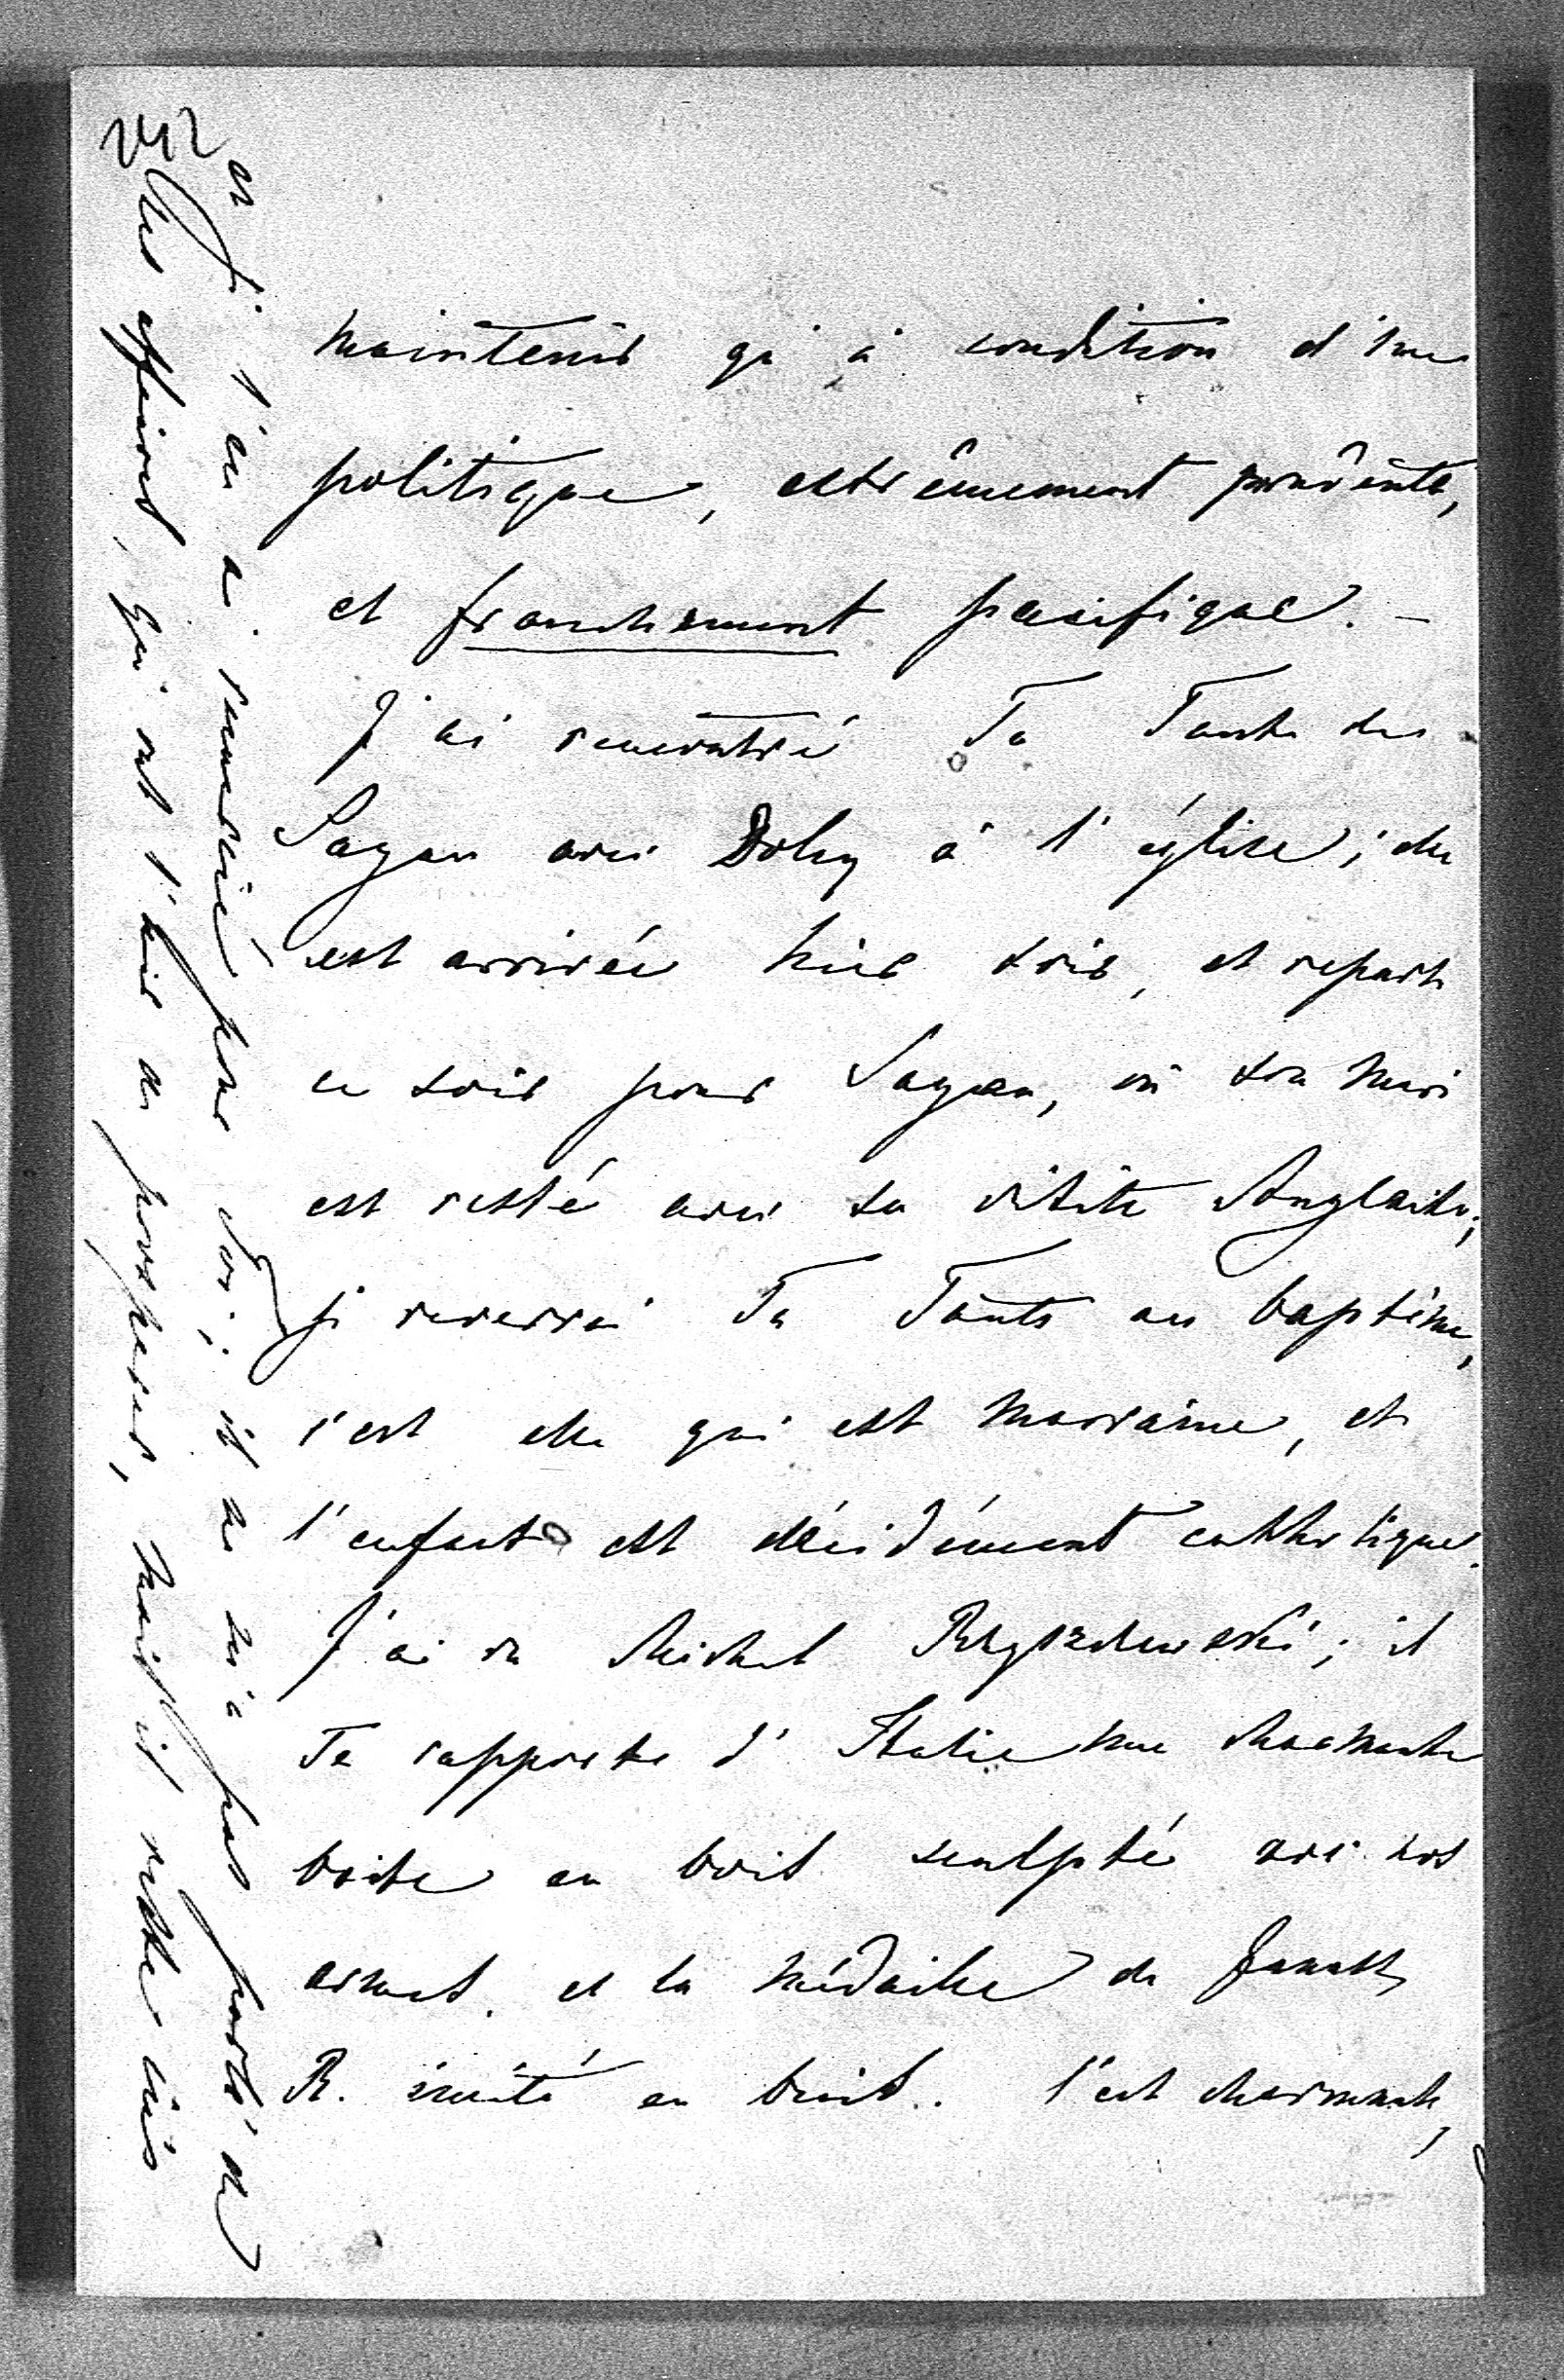 maintenir qu'à condition d'une
politique, extrêmement prudente,
et franchement pacifique. –
J'ai rencontré Ta Tante de
Sagan avec Dolly à l'église; elle
est arrivée hier soir, et repart
ce soir pour Sagan, où son mari
est resté avec sa visite Anglaise;
je reverrai Ta Tante au baptême,
c'est elle qui est marraine, et
l'enfant est décidément catholique.
J'ai vu Michel; il
Te rapporte d'Italie une charmante
boite en bois sculpté avec nos
armes. et la médaille de
R. imité en bois.. C'est charmant,
Je l'en ai remercié pour Toi; il ne m'a pas parlé de
ses affaires, qui ont l'air de prospérer, mais il reste ici